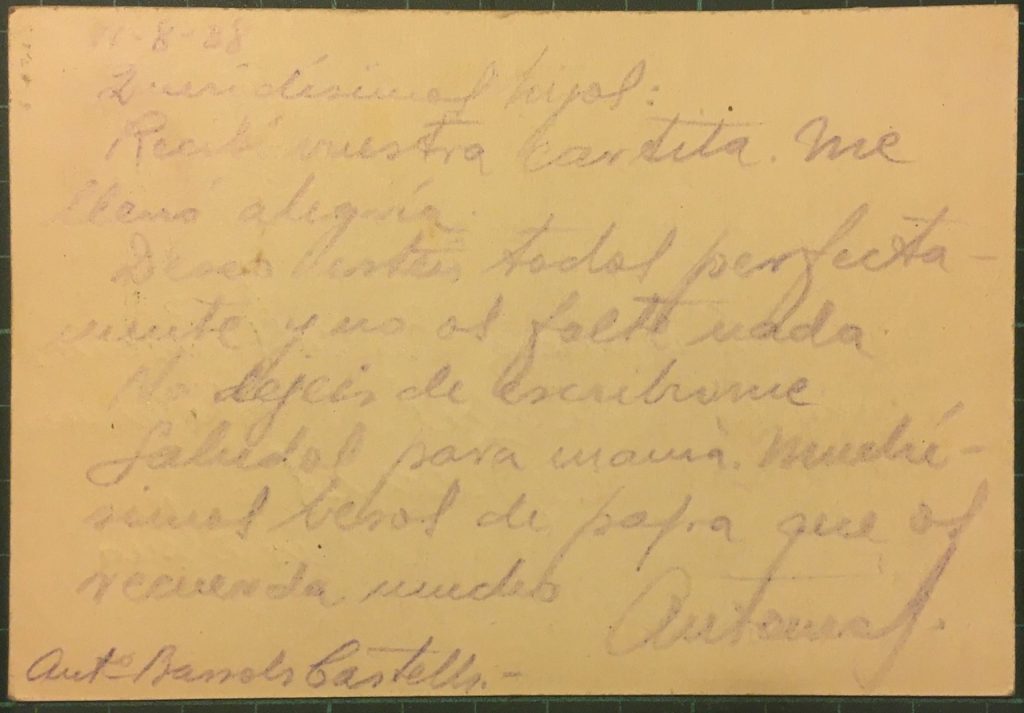 -8-38
Queridísimos hijos:
Recibí vuestra cartita. Me
llenó alegría.
Deseo estéis todos perfecta-
mente y no os falte nada.
No dejeis de escribirme
Saludos para mamá. Muchí-
simos besos de papá que os
recuerda mucho
Antonio
Antº Bassols Castells.-